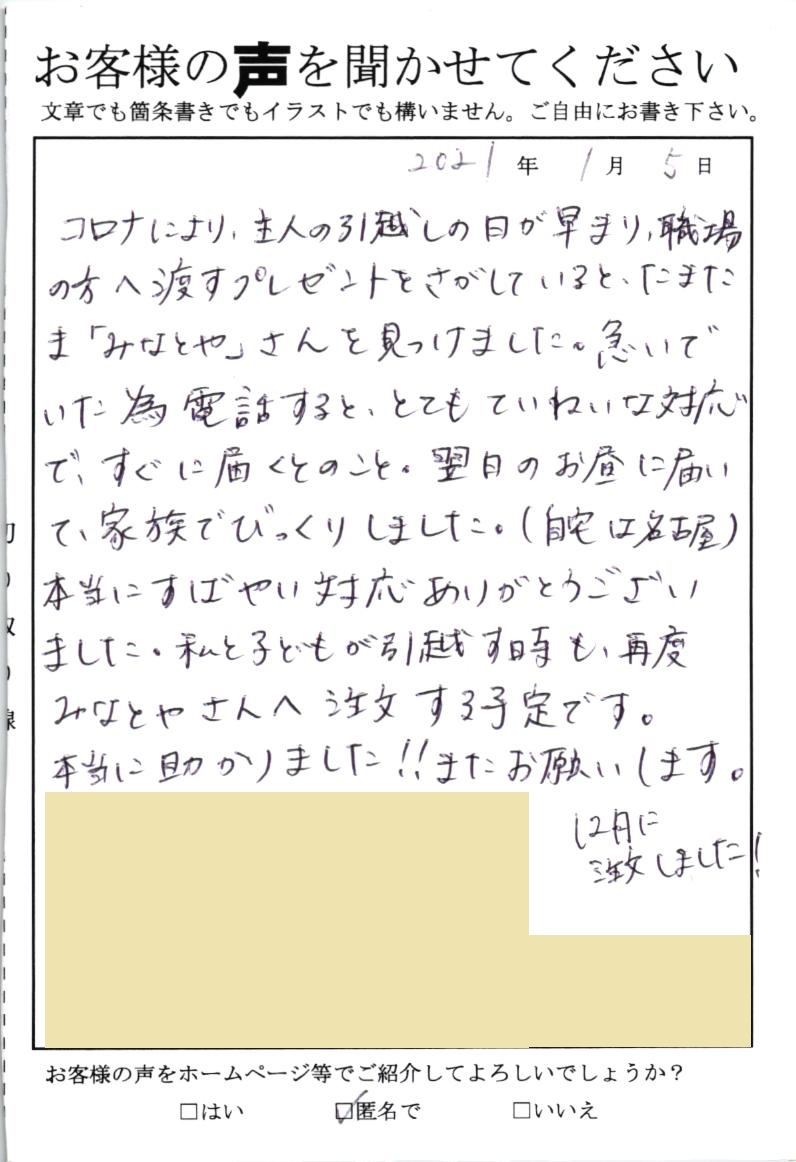 お客様の声を聞かせてください
文章でも箇条書きでもイラストでも構いません。ご自由にお書き下さい。
2021年 1月 5日
コロナにより、主人の引越しの日が早まり、職場
の方へ渡すプレゼントをさがしていると、たまた
ま「みなとや」さんを見つけました。急いで
いた為電話すると、とてもていねいな対応
で、すぐに届くとのこと。翌日のお昼に届い
て、家族でびっくりしました。(自宅は名古屋)
本当にすばやい対応ありがとうござい
ました。私と子どもが引越す時も、再度
みなとやさんへ注文する予定です。
本当に助かりました!!またお願いします。
12月に
注文しました!
切り取り線
お客様の声をホームページ等でご紹介してよろしいでしょうか?
□はい ☑匿名で □いいえ